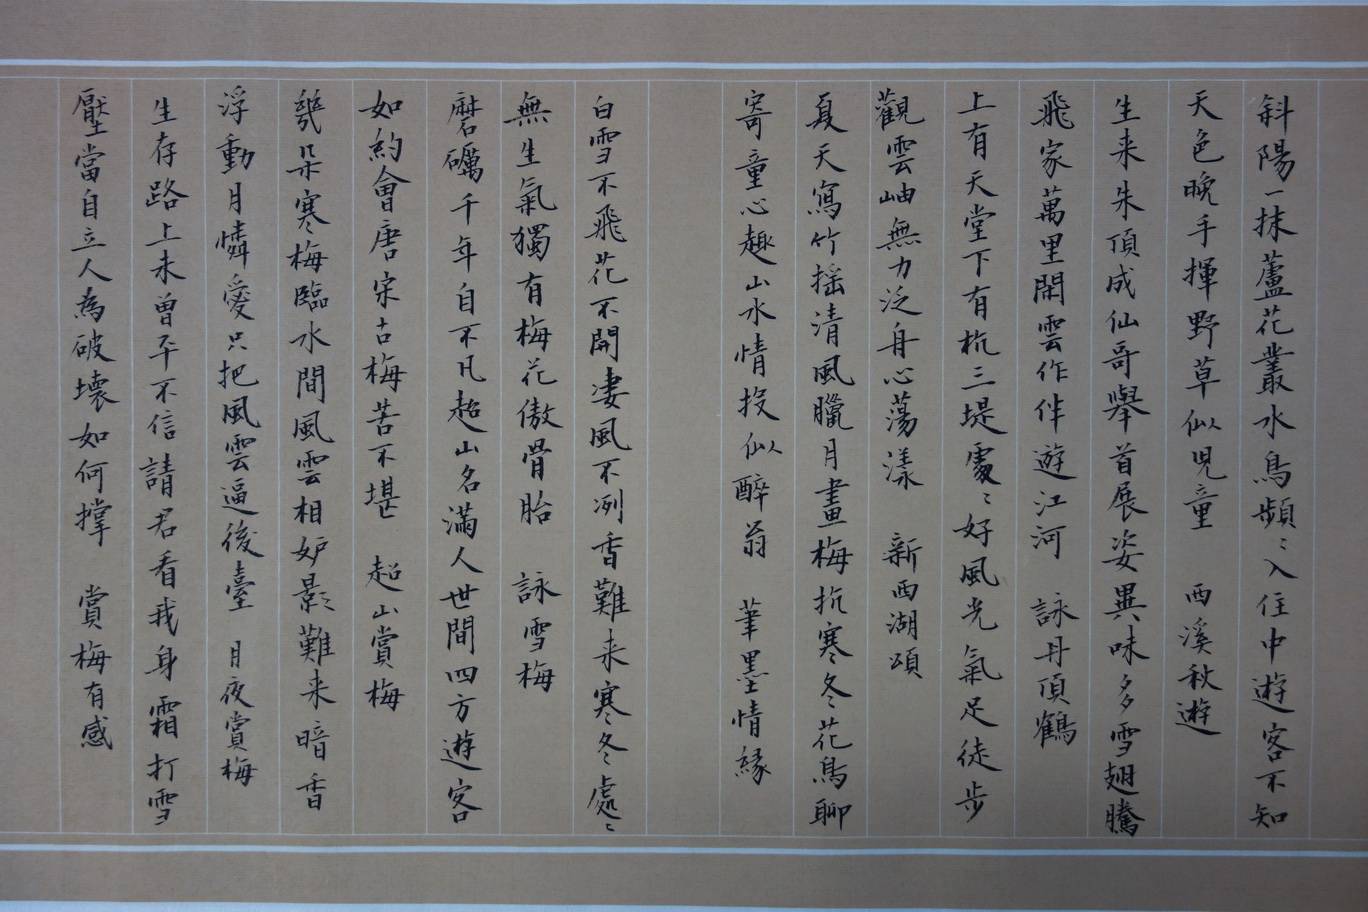 斜陽一抹蘆花叢水鳥頻〻入住中遊客不知
天色晚手揮野草似児童　西溪秋遊
生来朱頂成仙哥舉首展姿異味多雪翅騰
飛家萬里閑雲作伴遊江河　詠丹頂鶴
上有天堂下有杭三堤處〻好風光氣足徒步
觀雲岫無力泛舟心蕩漾　新西湖頌
夏天寫竹摇清風臘月畫梅抗寒冬花鳥聊
寄童心趣山水情投似醉翁　筆墨情緣
白雪不飛花不開凄風不冽香難来寒冬處〻
無生氣獨有梅花傲骨胎　詠雪梅
磨礪千年自不凡超山名滿人世間四方遊客
如約會唐宋古梅苦不堪　超山賞梅
幾朵寒梅臨水間風雲相妒影難来暗香
浮動月憐愛只把風雲逼後臺　月夜賞梅
生存路上未曾平不信請君看我身霜打雪
壓當自立人為破壞如何撑　賞梅有感